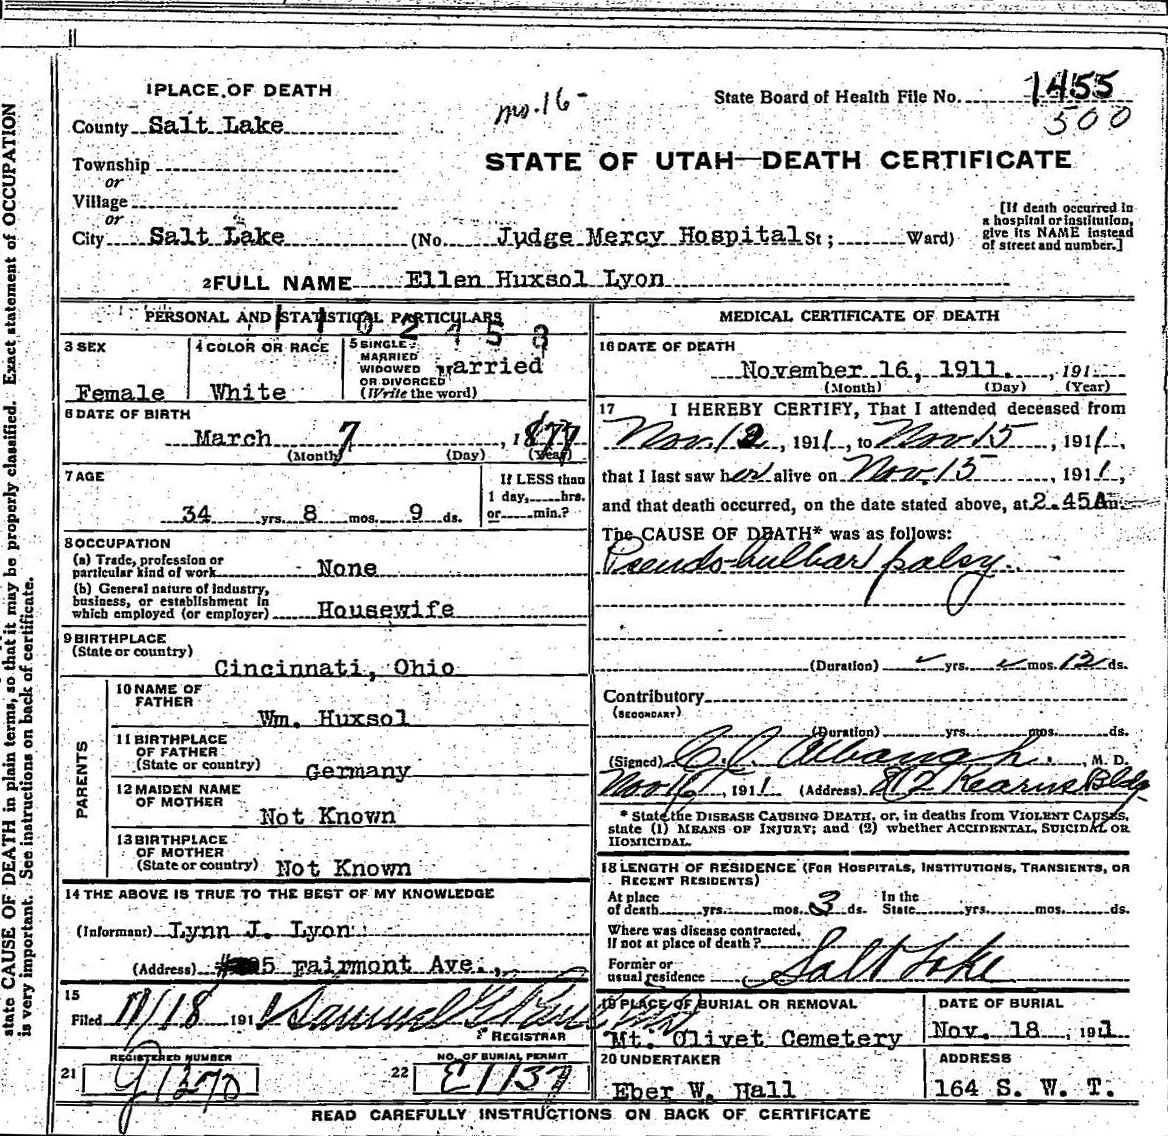 1 PLACE OF DEATH
mo. 16-
State Board of Health File No. 1455
500
County Salt Lake
STATE OF UTAH—DEATH CERTIFICATE
Township
or
Village
or
City Salt Lake (No. Judge Mercy Hospital St; Ward)
[If death occurred in
a hospital or institution,
give its NAME instead
of street and number.]
2 FULL NAME Ellen Huxsol Lyon
PERSONAL AND STATISTICAL PARTICULARS
1102458
3 SEX
Female
4 COLOR OR RACE
White
5 SINGLE,
MARRIED
WIDOWED
OR DIVORCED
(Write the word)
Married
6 DATE OF BIRTH
March 7, 1877
(Month) (Day) (Year)
7 AGE
34 yrs. 8 mos. 9 ds.
If LESS than
1 day, hrs.
or min.?
8 OCCUPATION
(a) Trade, profession or
particular kind of work None
(b) General nature of industry,
business, or establishment in
which employed (or employer) Housewife
9 BIRTHPLACE
(State or country)
Cincinnati, Ohio
PARENTS
10 NAME OF
FATHER
Wm. Huxsol
11 BIRTHPLACE
OF FATHER
(State or country)
Germany
12 MAIDEN NAME
OF MOTHER
Not Known
13 BIRTHPLACE
OF MOTHER
(State or country) Not Known
14 THE ABOVE IS TRUE TO THE BEST OF MY KNOWLEDGE
(Informant) Lynn J. Lyon
(Address) 5 Fairmont Ave.,
15
Filed 11/18 1911 Samuel G.
REGISTRAR
21 REGISTERED NUMBER
G1370
22 NO. OF BURIAL PERMIT
E1137
MEDICAL CERTIFICATE OF DEATH
16 DATE OF DEATH
November 16, 1911. , 191
(Month) (Day) (Year)
17 I HEREBY CERTIFY, That I attended deceased from
Nov. 12, 1911, to Nov 15, 1911,
that I last saw her alive on Nov. 15, 1911,
and that death occurred, on the date stated above, at 2.45 A m.
The CAUSE OF DEATH* was as follows:
Pseudo-bulbar palsy.
(Duration) yrs. mos. 12 ds.
Contributory
(SECONDARY)
(Duration) yrs. mos. ds.
(Signed) C. J. Albaugh, M. D.
Nov 16, 1911 (Address) 812 Kearns Bldg
* State the DISEASE CAUSING DEATH, or, in deaths from VIOLENT CAUSES,
state (1) MEANS OF INJURY; and (2) whether ACCIDENTAL, SUICIDAL OR
HOMICIDAL.
18 LENGTH OF RESIDENCE (FOR HOSPITALS, INSTITUTIONS, TRANSIENTS, OR
RECENT RESIDENTS)
At place
of death yrs. mos. 3 ds. In the
State yrs. mos. ds.
Where was disease contracted,
if not at place of death?
Former or
usual residence Salt Lake
19 PLACE OF BURIAL OR REMOVAL
Mt. Olivet Cemetery
DATE OF BURIAL
Nov. 18, 1911
20 UNDERTAKER
Eber W. Hall
ADDRESS
164 S. W. T.
READ CAREFULLY INSTRUCTIONS ON BACK OF CERTIFICATE
state CAUSE OF DEATH in plain terms, so that it may be properly classified. Exact statement of OCCUPATION
is very important. See instructions on back of certificate.